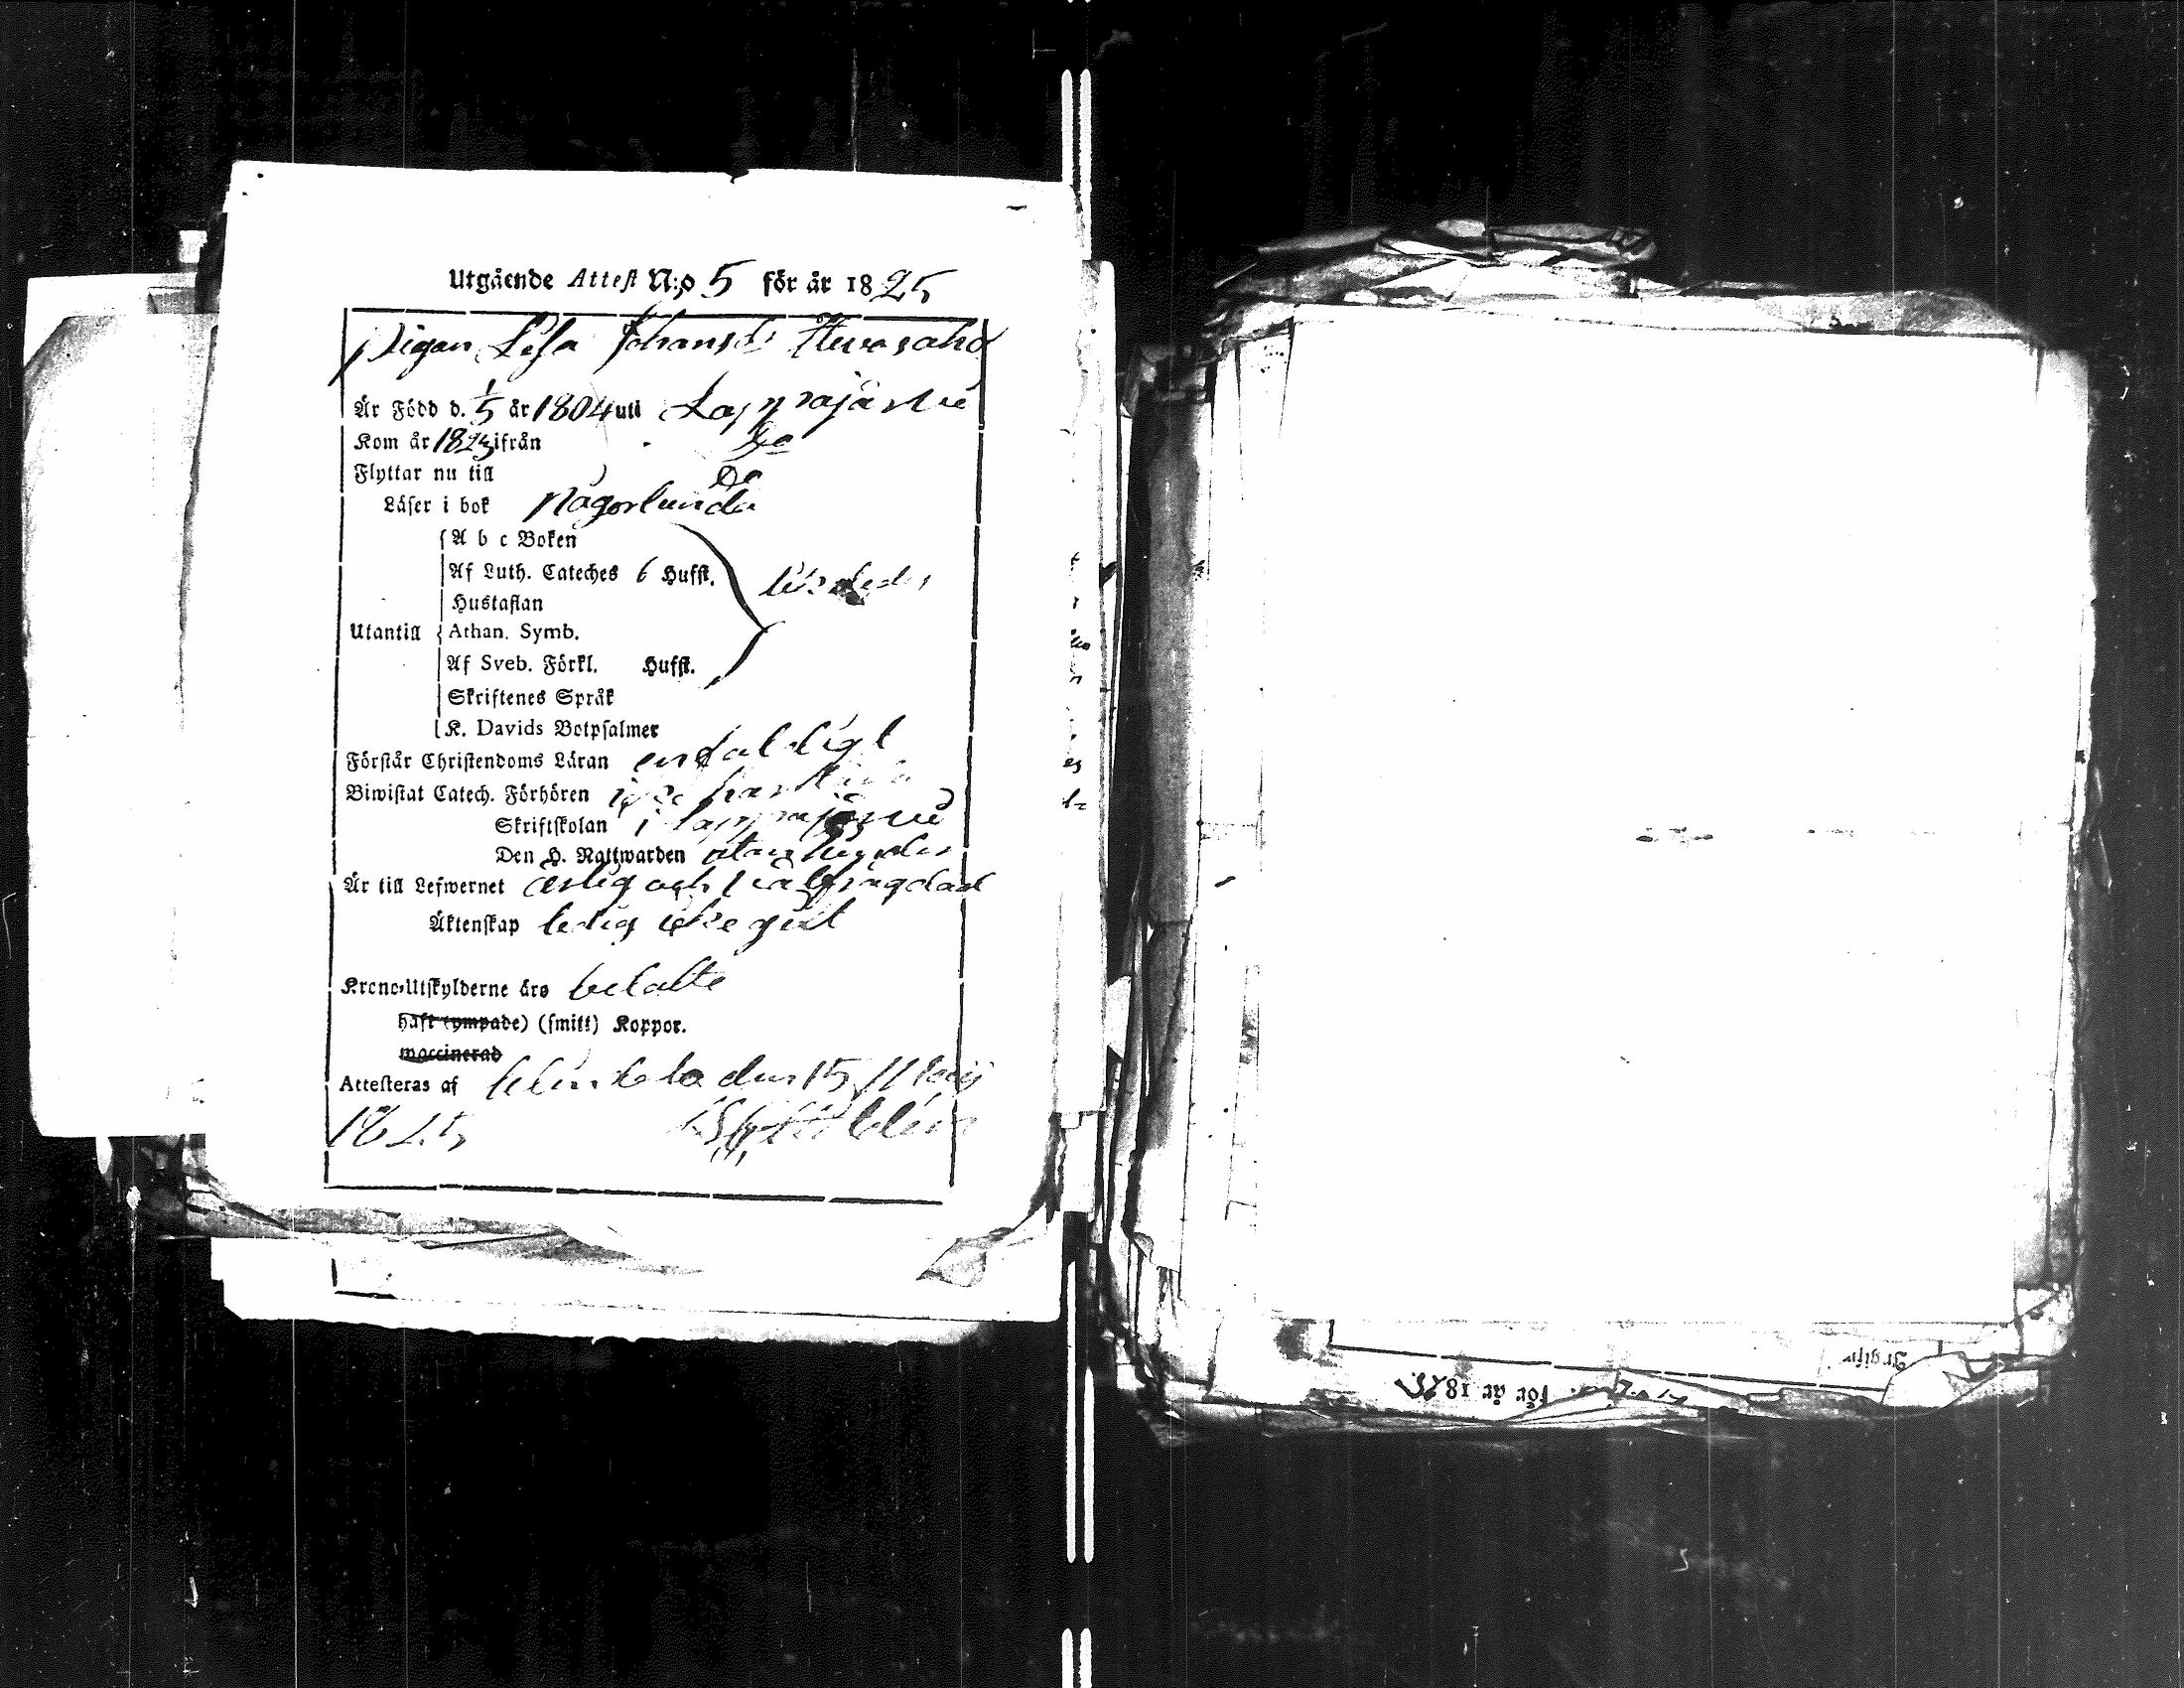 Utgående Attest N:o 5 för år 1825
Pigan Lisa Johansdr
Är Född d. 1/5 år 1804 uti Lappajärvi
Kom år 1823 ifrån Do
Flyttar nu till Do
Läser i bok någorlunda
A b c Boken
Af Luth. Cateches 6 Hufst.
Hustaflan
Utantill Athan. Symb.
Af Sveb. Förkl. Hufst.
Skriftenes Språk
K. Davids Botpsalmer
Förstår Christendoms Läran enfaldigt
Biwistat Catech. Förhören
Skriftskolan i Lappajärvi
Den H. Nattwarden
Är till Lefwernet ärlig och wälfrägdad
Äktenskap ledig icke gift
Krono-Utskylderne äro betalte
haft (ympade) (smitt) Koppor.
waccinerad
Attesteras af den 15 Maij
1825
för år 1825.